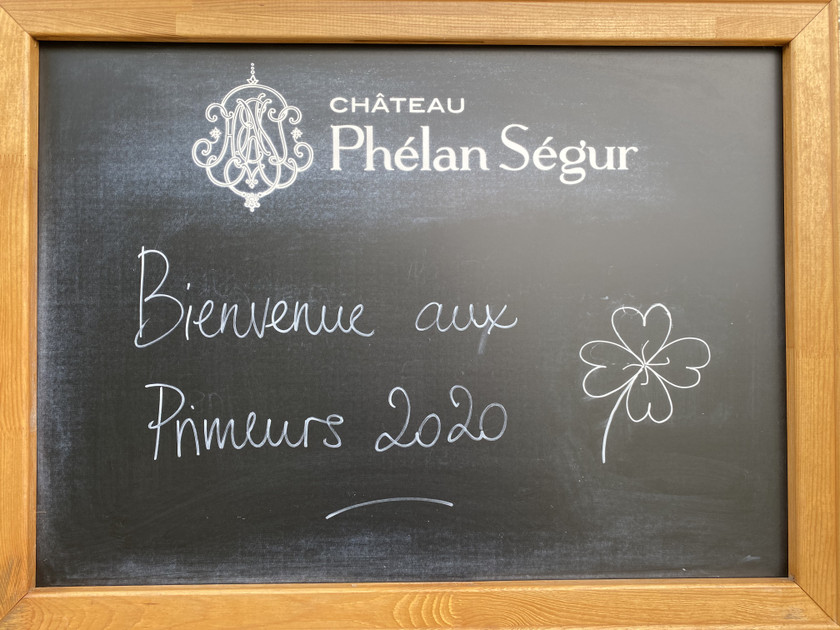 CHÂTEAU
Phélan Ségur
Bienvenue aux
Primeurs 2020